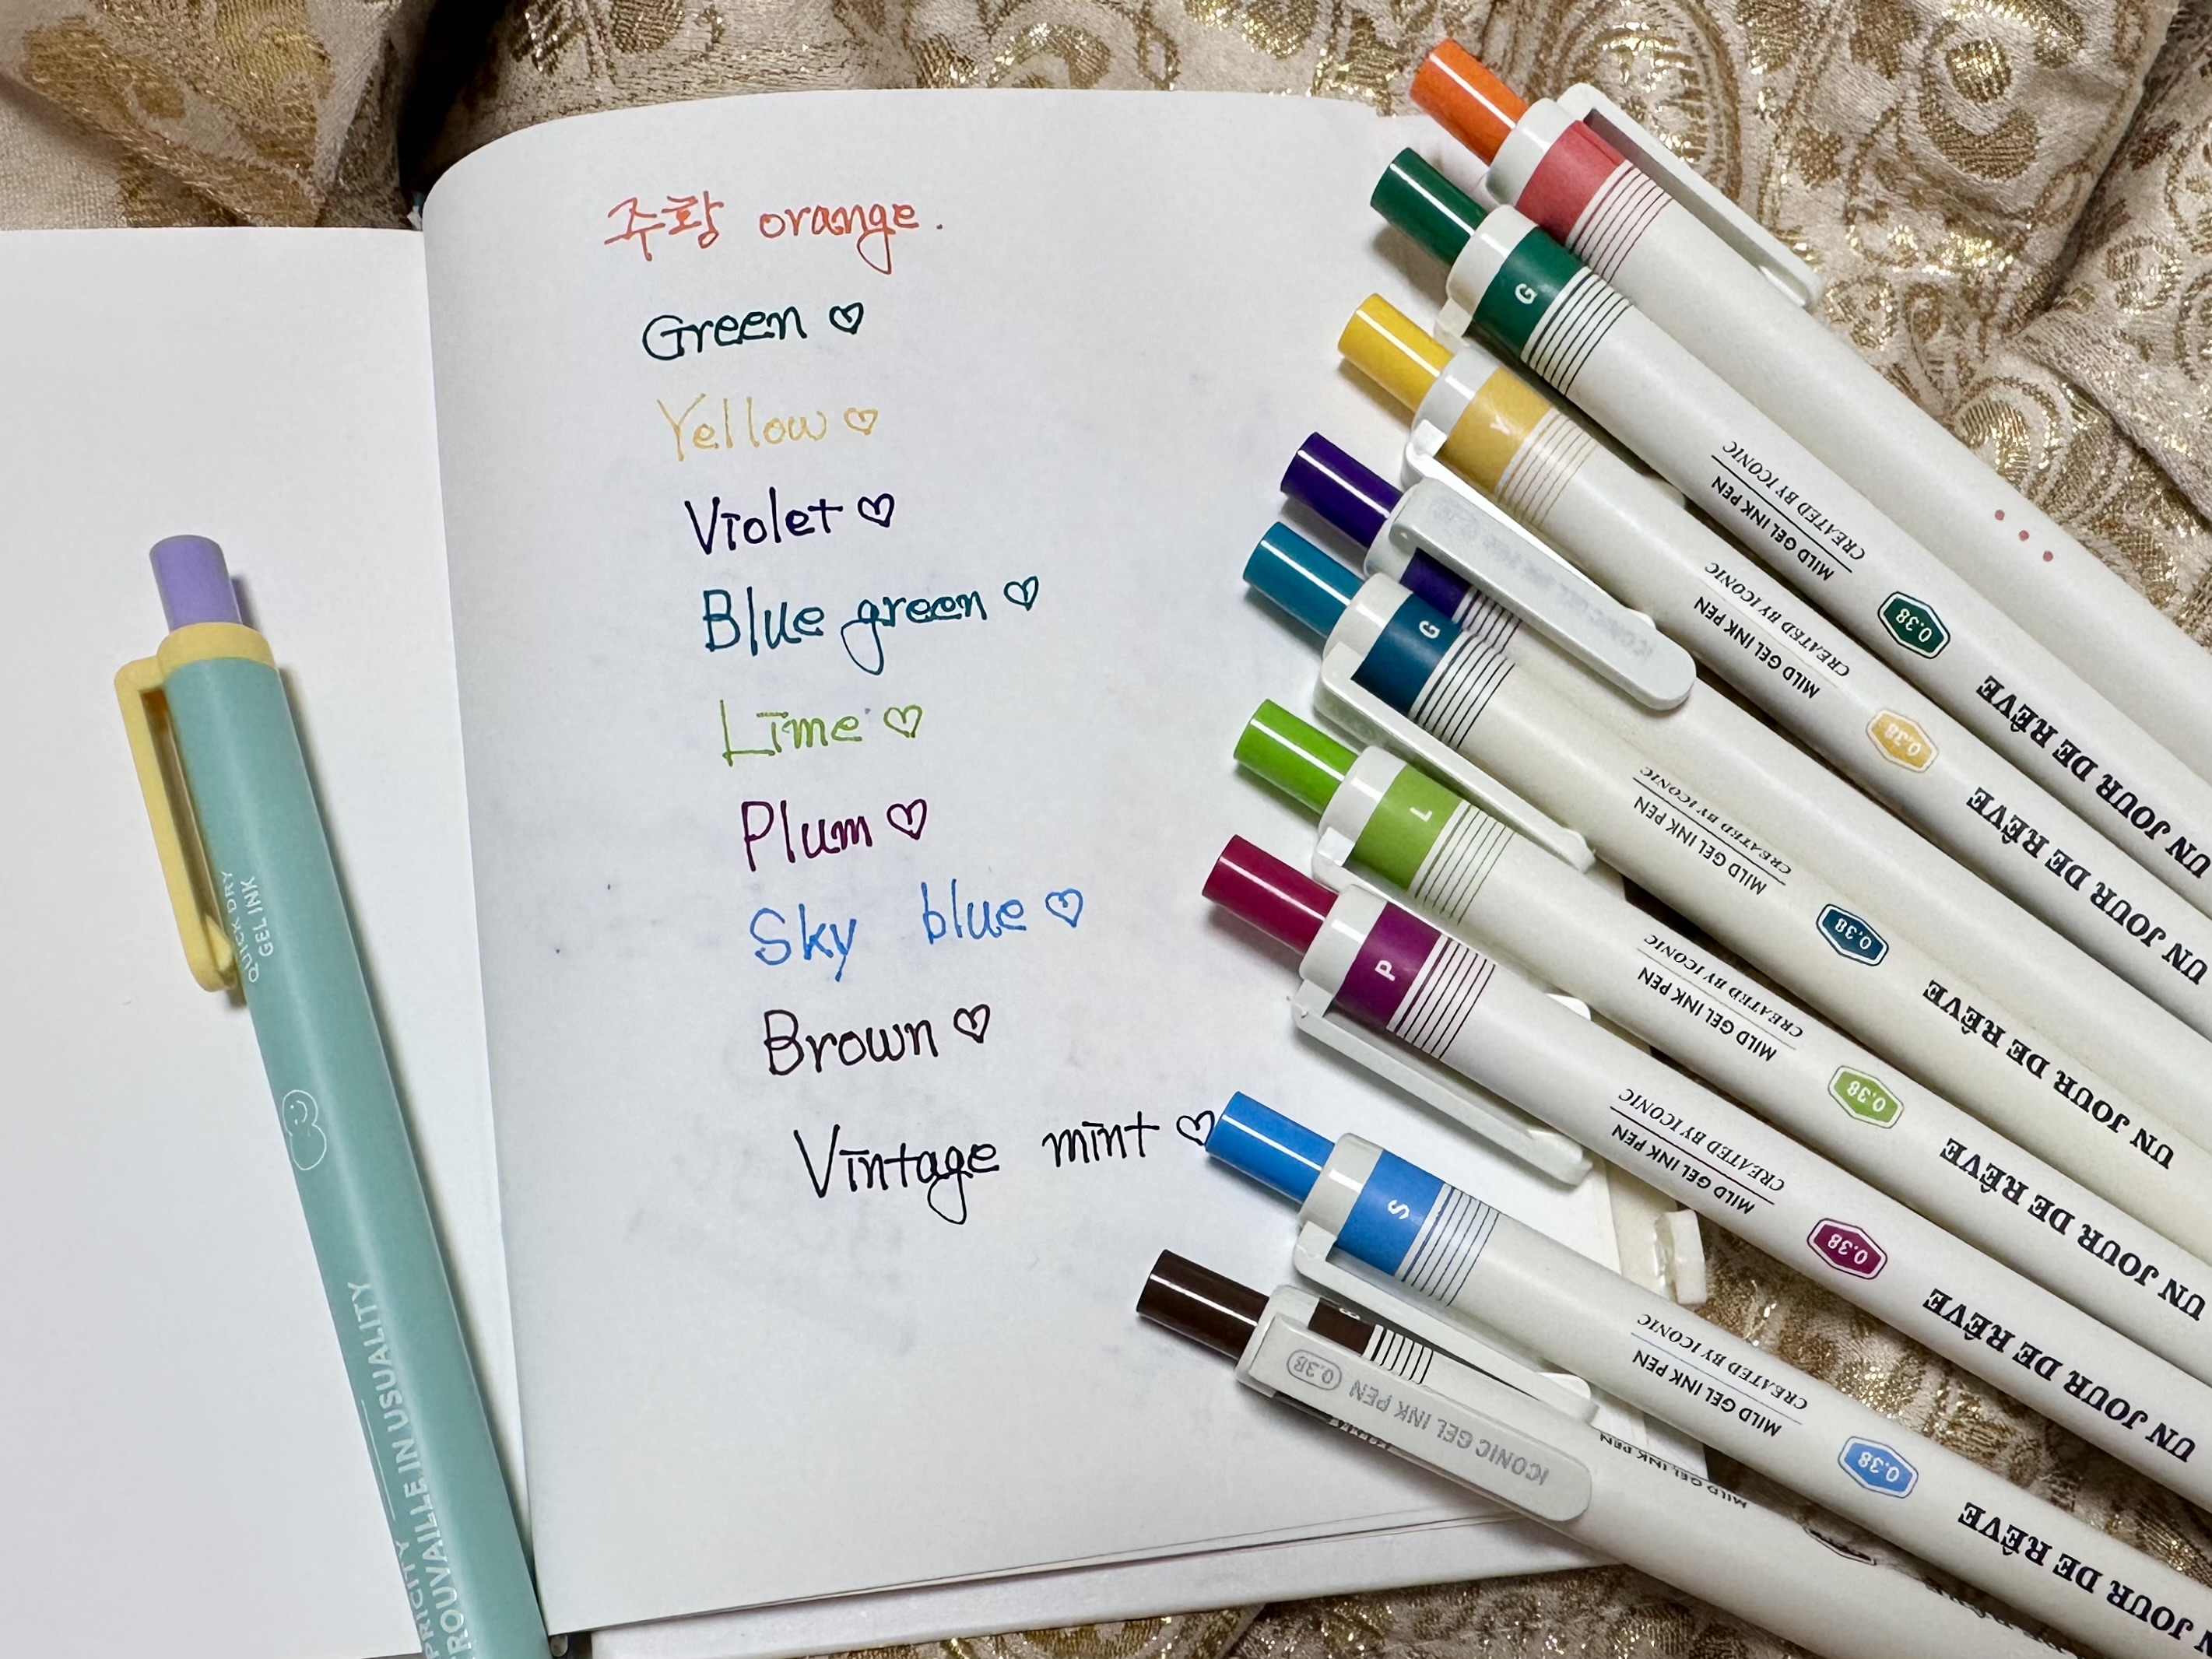 주황 orange.
Green ♡
Yellow ♡
Violet ♡
Blue green ♡
Lime ♡
Plum ♡
Sky blue ♡
Brown ♡
Vintage mint ♡
QUICK DRY
GEL INK
PRICITY
ROUVAILLE IN USUALITY
G
MILD GEL INK PEN
CREATED BY ICONIC
0.38
UN JOUR DE RÊVE
Y
MILD GEL INK PEN
CREATED BY ICONIC
0.38
UN JOUR DE RÊVE
G
MILD GEL INK PEN
CREATED BY ICONIC
0.38
UN JOUR DE RÊVE
L
MILD GEL INK PEN
CREATED BY ICONIC
0.38
UN JOUR DE RÊVE
P
MILD GEL INK PEN
CREATED BY ICONIC
0.38
UN JOUR DE RÊVE
S
MILD GEL INK PEN
CREATED BY ICONIC
0.38
UN JOUR DE RÊVE
ICONIC GEL INK PEN 0.38
MILD GEL INK PEN